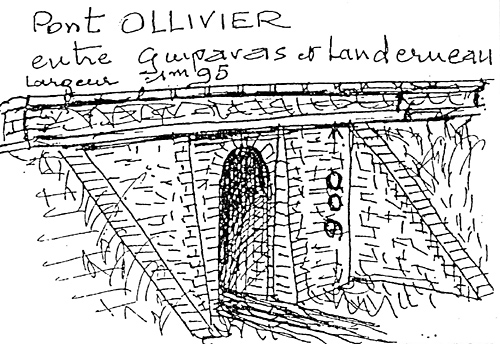 Pont OLLIVIER
entre Guipavas et Landerneau
Largeur 1m95